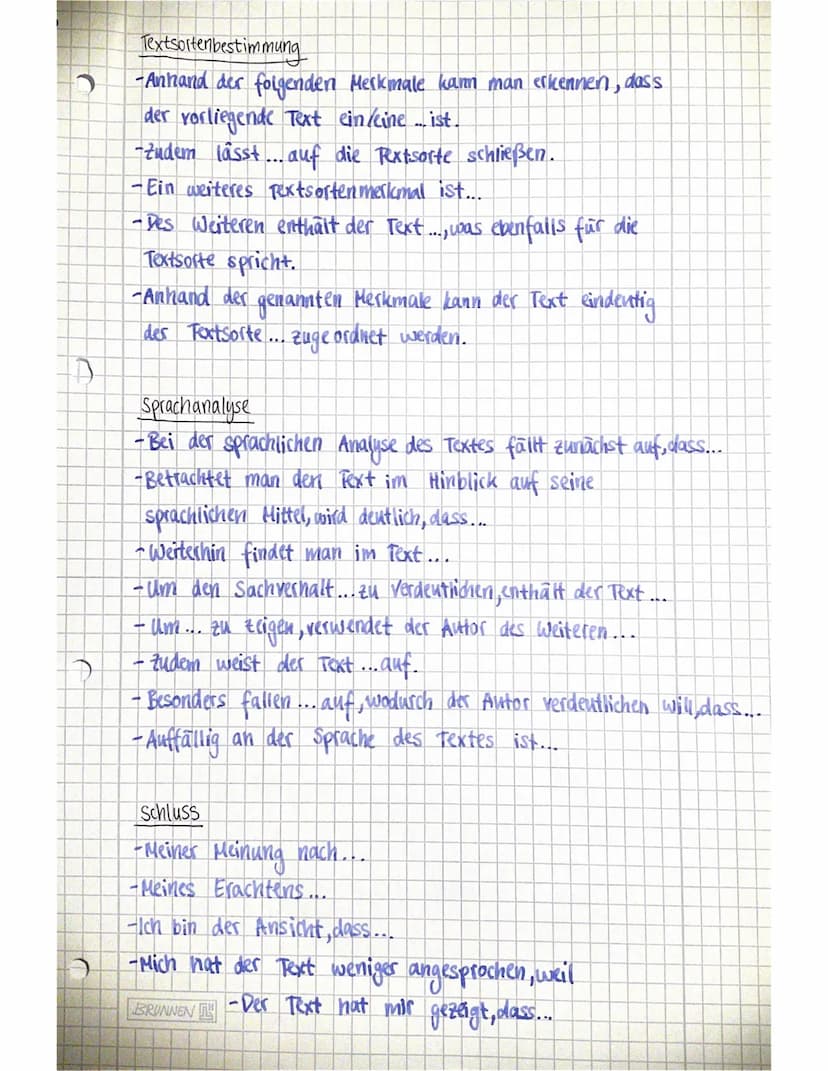 Textsortenbestimmung
-Anhand der folgenden Merkmale kann man erkennen, dass
der vorliegende Text ein/eine ... ist.
-Zudem lässt ... auf die Textsorte schließen.
-Ein weiteres Textsortenmerkmal ist...
-Des Weiteren enthält der Text ..., was ebenfalls für die
Textsorte spricht.
-Anhand der genannten Merkmale kann der Text eindeutig
der Textsorte ... zugeordnet werden.
Sprachanalyse
-Bei der sprachlichen Analyse des Textes fällt zunächst auf, dass...
-Betrachtet man den Text im Hinblick auf seine
sprachlichen Mittel, wird deutlich, dass...
-Weiterhin findet man im Text...
-Um den Sachverhalt... zu verdeutlichen, enthält der Text ...
-Um... zu zeigen, verwendet der Autor des Weiteren...
-Zudem weist der Text ... auf.
-Besonders fallen ... auf, wodurch der Autor verdeutlichen will, dass...
-Auffällig an der Sprache des Textes ist...
Schluss
-Meiner Meinung nach...
-Meines Erachtens...
-Ich bin der Ansicht, dass...
-Mich hat der Text weniger angesprochen, weil
BRUNNEN -Der Text hat mir gezeigt, dass...